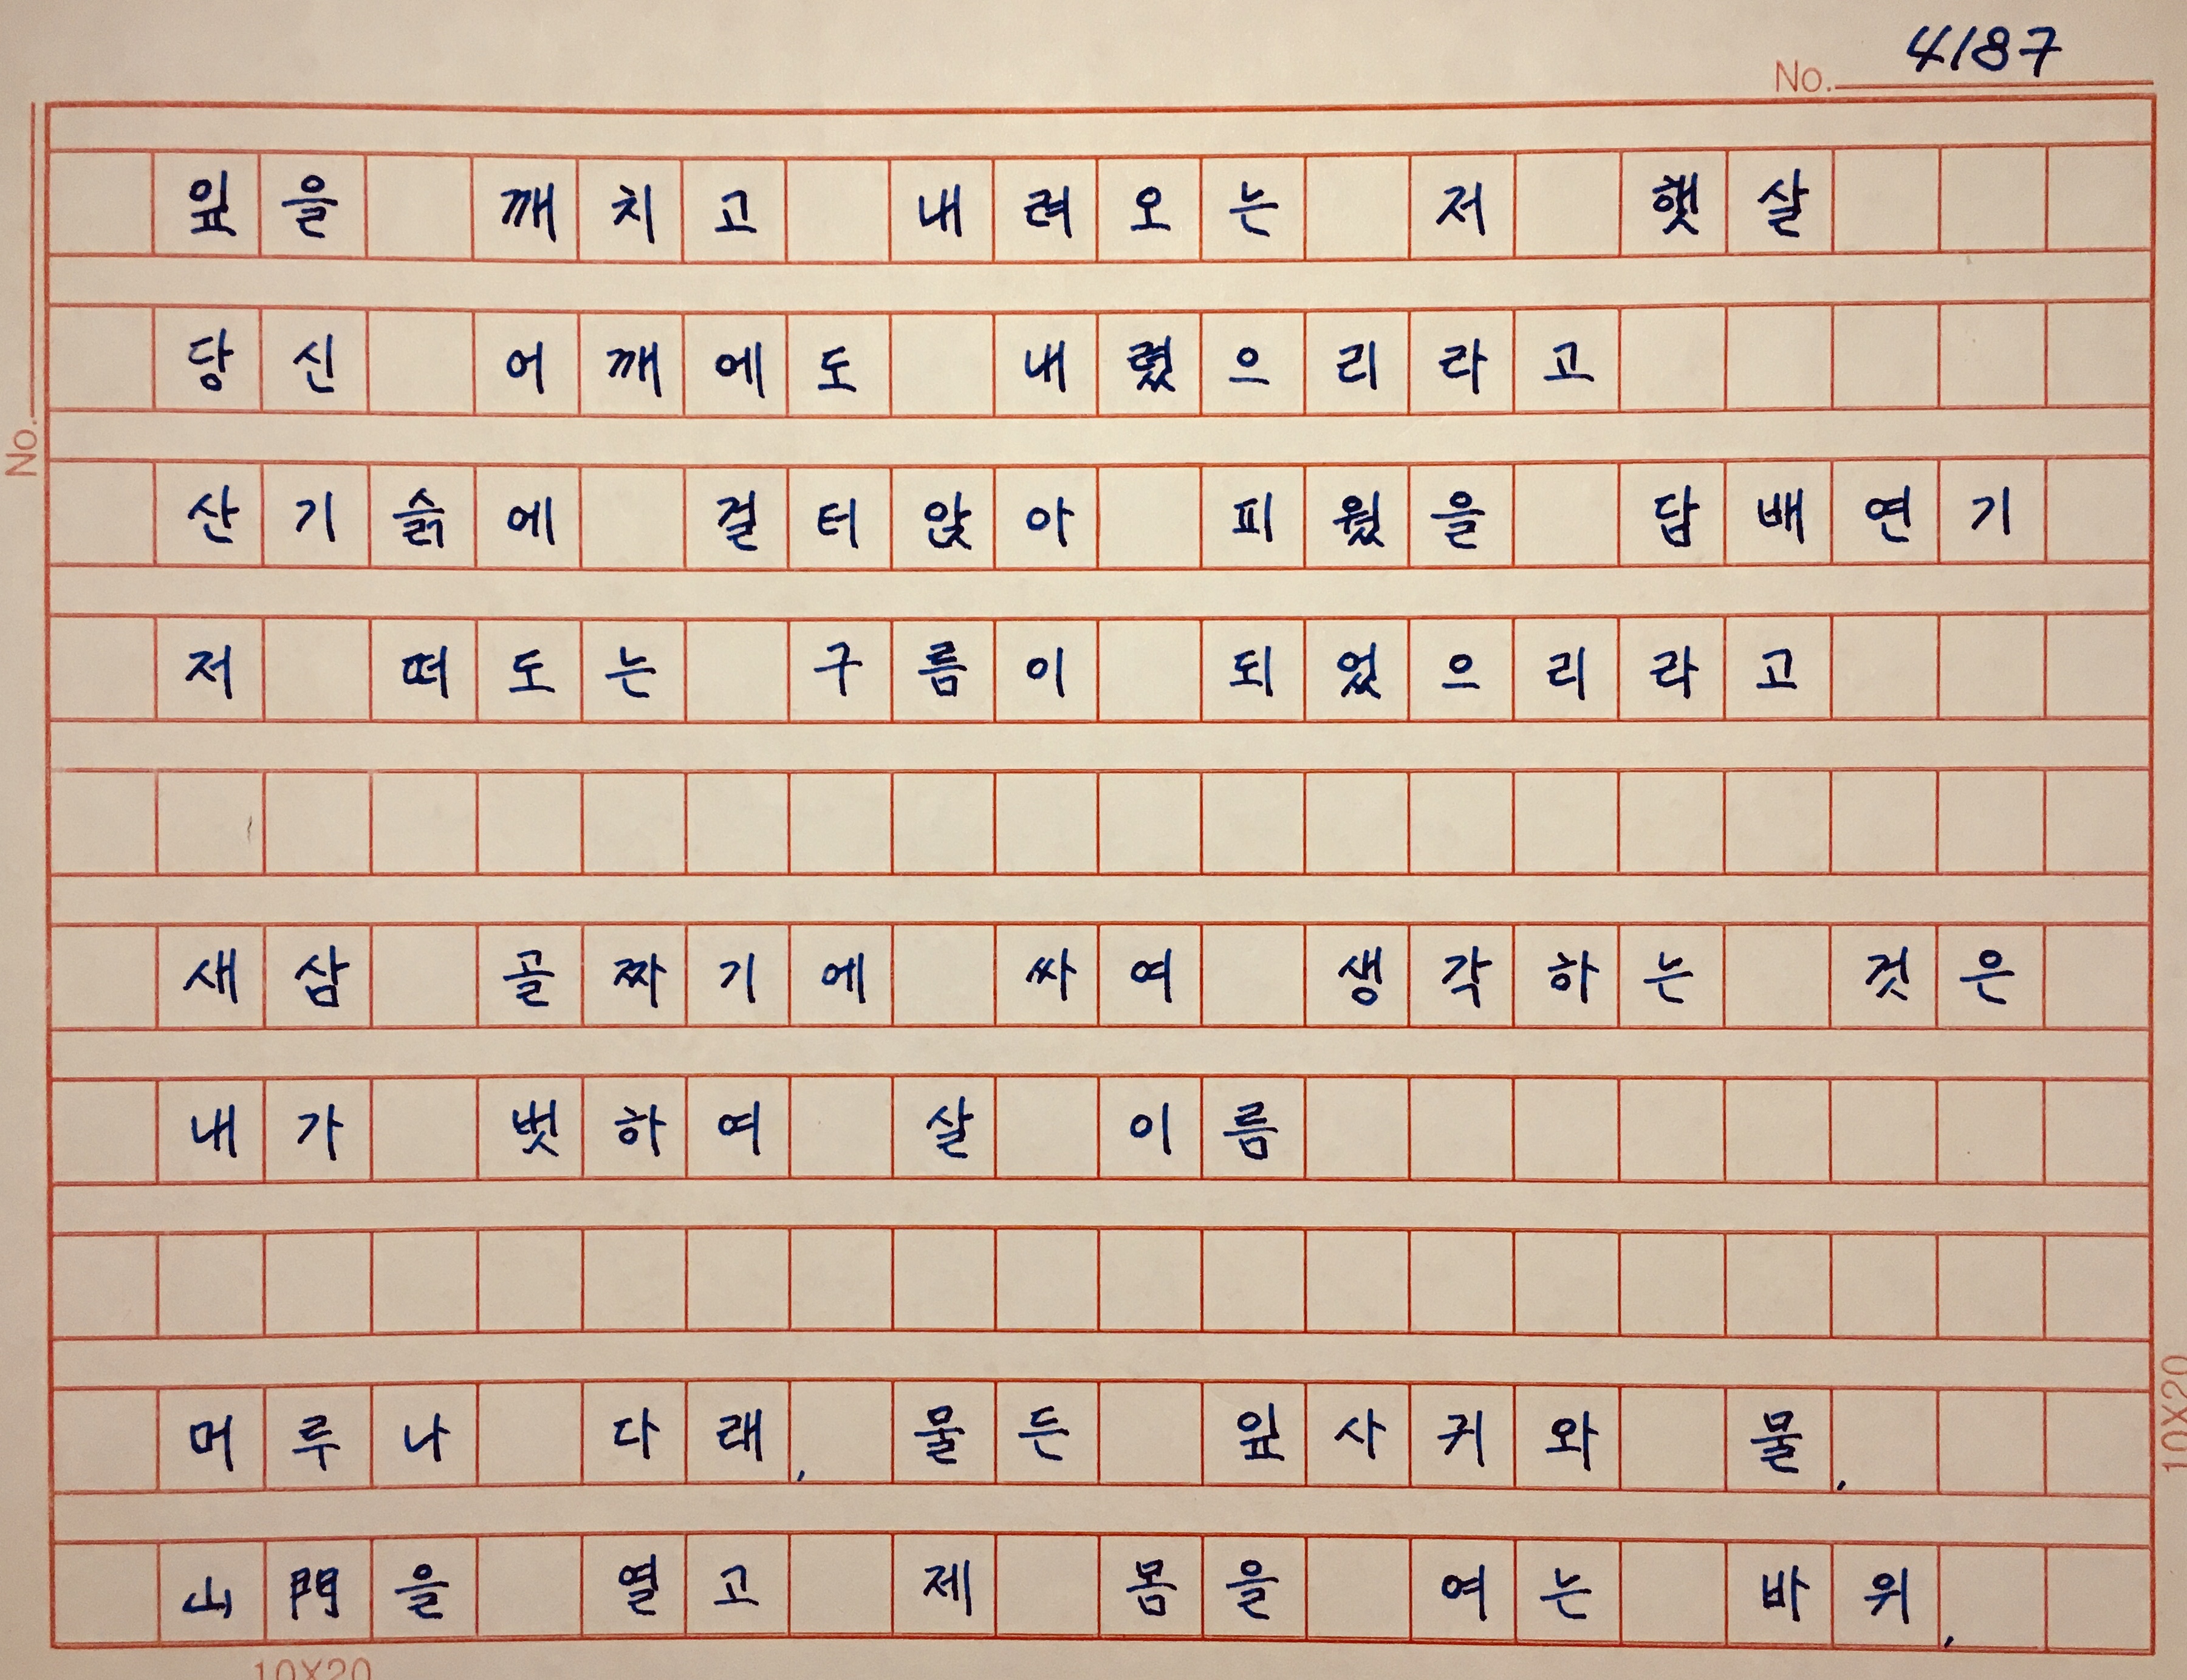 No. 4187
잎을 깨치고 내려오는 저 햇살
당신 어깨에도 내렸으리라고
산기슭에 걸터앉아 피웠을 담배연기
저 떠도는 구름이 되었으리라고
새삼 골짜기에 싸여 생각하는 것은
내가 벗하여 살 이름
머루나 다래, 물든 잎사귀와 물,
山門을 열고 제 몸을 여는 바위,
No.
10X20
10X20